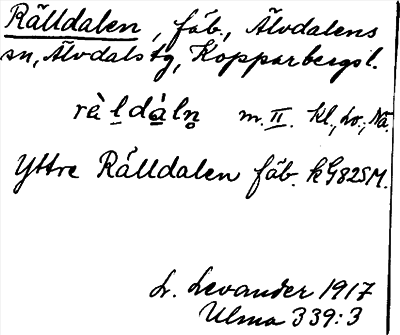 Rälldalen, fäb., Älvdalens
sn, Älvdalstg, Kopparbergsl.
rè̀ldáln̥ m. II. Kl., Lo., Nä.
Yttre Rälldalen fäb. kG82SM.
L. Levander 1917
Ulma 339:3